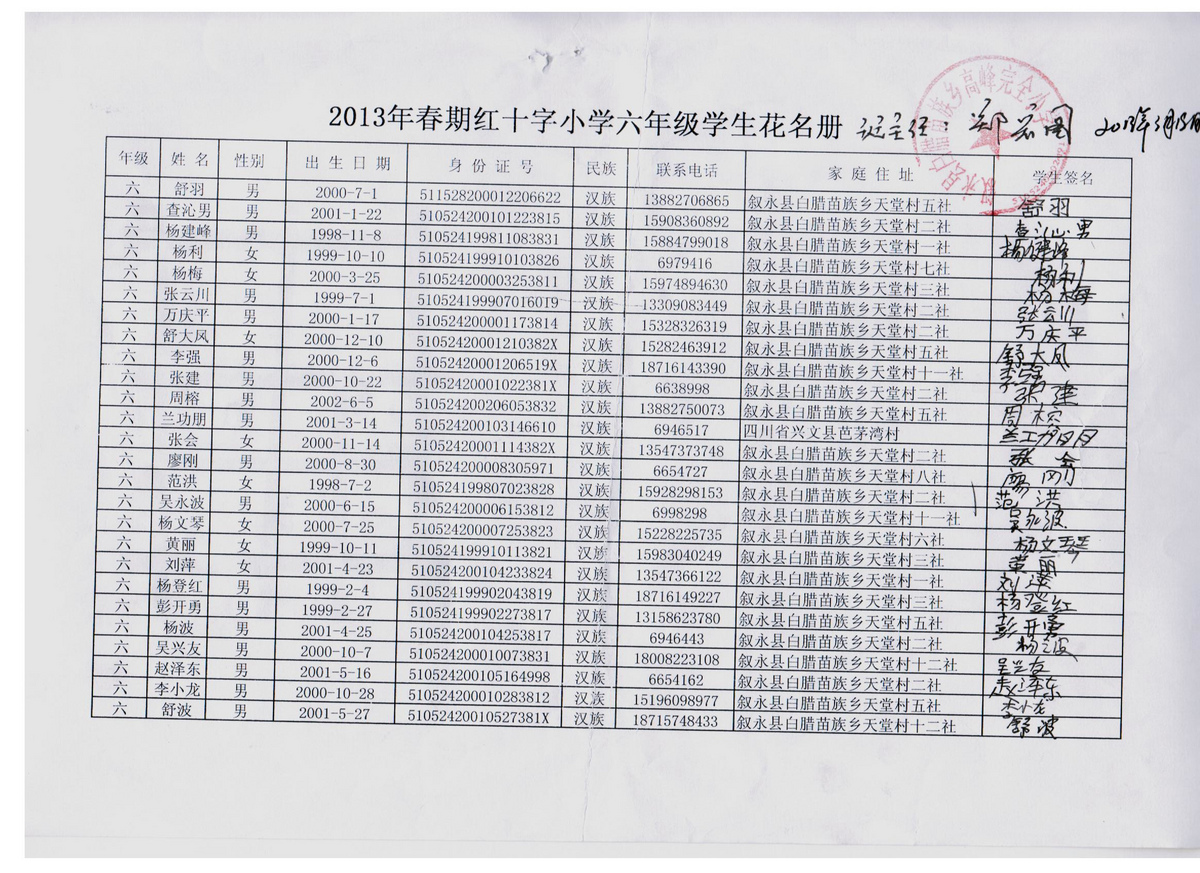 2013年春期红十字小学六年级学生花名册
年级 姓名 性别 出生日期 身份证号 民族 联系电话 家庭住址 学生签名
六 舒羽 男 2000-7-1 511528200012206622 汉族 13882706865 叙永县白腊苗族乡天堂村五社 舒羽
六 查沁男 男 2001-1-22 510524200101223815 汉族 15908360892 叙永县白腊苗族乡天堂村二社 查沁男
六 杨建峰 男 1998-11-8 510524199811083831 汉族 15884799018 叙永县白腊苗族乡天堂村一社 杨建峰
六 杨利 女 1999-10-10 510524199910103826 汉族 6979416 叙永县白腊苗族乡天堂村七社 杨利
六 杨梅 女 2000-3-25 510524200003253811 汉族 15974894630 叙永县白腊苗族乡天堂村三社 杨梅
六 张云川 男 1999-7-1 5105241999070160I9 汉族 13309083449 叙永县白腊苗族乡天堂村二社 张云川
六 万庆平 男 2000-1-17 510524200001173814 汉族 15328326319 叙永县白腊苗族乡天堂村二社 万庆平
六 舒大风 女 2000-12-10 51052420001210382X 汉族 15282463912 叙永县白腊苗族乡天堂村五社 舒大风
六 李强 男 2000-12-6 51052420001206519X 汉族 18716143390 叙永县白腊苗族乡天堂村十一社 李强
六 张建 男 2000-10-22 51052420001022381X 汉族 6638998 叙永县白腊苗族乡天堂村二社 张建
六 周榕 男 2002-6-5 510524200206053832 汉族 13882750073 叙永县白腊苗族乡天堂村五社 周榕
六 兰功朋 男 2001-3-14 510524200103146610 汉族 6946517 四川省兴文县芭茅湾村 兰功朋
六 张会 女 2000-11-14 51052420001114382X 汉族 13547373748 叙永县白腊苗族乡天堂村二社 张会
六 廖刚 男 2000-8-30 510524200008305971 汉族 6654727 叙永县白腊苗族乡天堂村八社 廖刚
六 范洪 女 1998-7-2 510524199807023828 汉族 15928298153 叙永县白腊苗族乡天堂村二社 范洪
六 吴永波 男 2000-6-15 510524200006153812 汉族 6998298 叙永县白腊苗族乡天堂村十一社 吴永波
六 杨文琴 女 2000-7-25 510524200007253823 汉族 15228225735 叙永县白腊苗族乡天堂村六社 杨文琴
六 黄丽 女 1999-10-11 510524199910113821 汉族 15983040249 叙永县白腊苗族乡天堂村三社 黄丽
六 刘萍 女 2001-4-23 510524200104233824 汉族 13547366122 叙永县白腊苗族乡天堂村一社 刘萍
六 杨登红 男 1999-2-4 510524199902043819 汉族 18716149227 叙永县白腊苗族乡天堂村三社 杨登红
六 彭开勇 男 1999-2-27 510524199902273817 汉族 13158623780 叙永县白腊苗族乡天堂村五社 彭开勇
六 杨波 男 2001-4-25 510524200104253817 汉族 6946443 叙永县白腊苗族乡天堂村二社 杨波
六 吴兴友 男 2000-10-7 510524200010073831 汉族 18008223108 叙永县白腊苗族乡天堂村十二社 吴兴友
六 赵泽东 男 2001-5-16 510524200105164998 汉族 6654162 叙永县白腊苗族乡天堂村二社 赵泽东
六 李小龙 男 2000-10-28 510524200010283812 汉族 15196098977 叙永县白腊苗族乡天堂村五社 李小龙
六 舒波 男 2001-5-27 51052420010527381X 汉族 18715748433 叙永县白腊苗族乡天堂村十二社 舒波